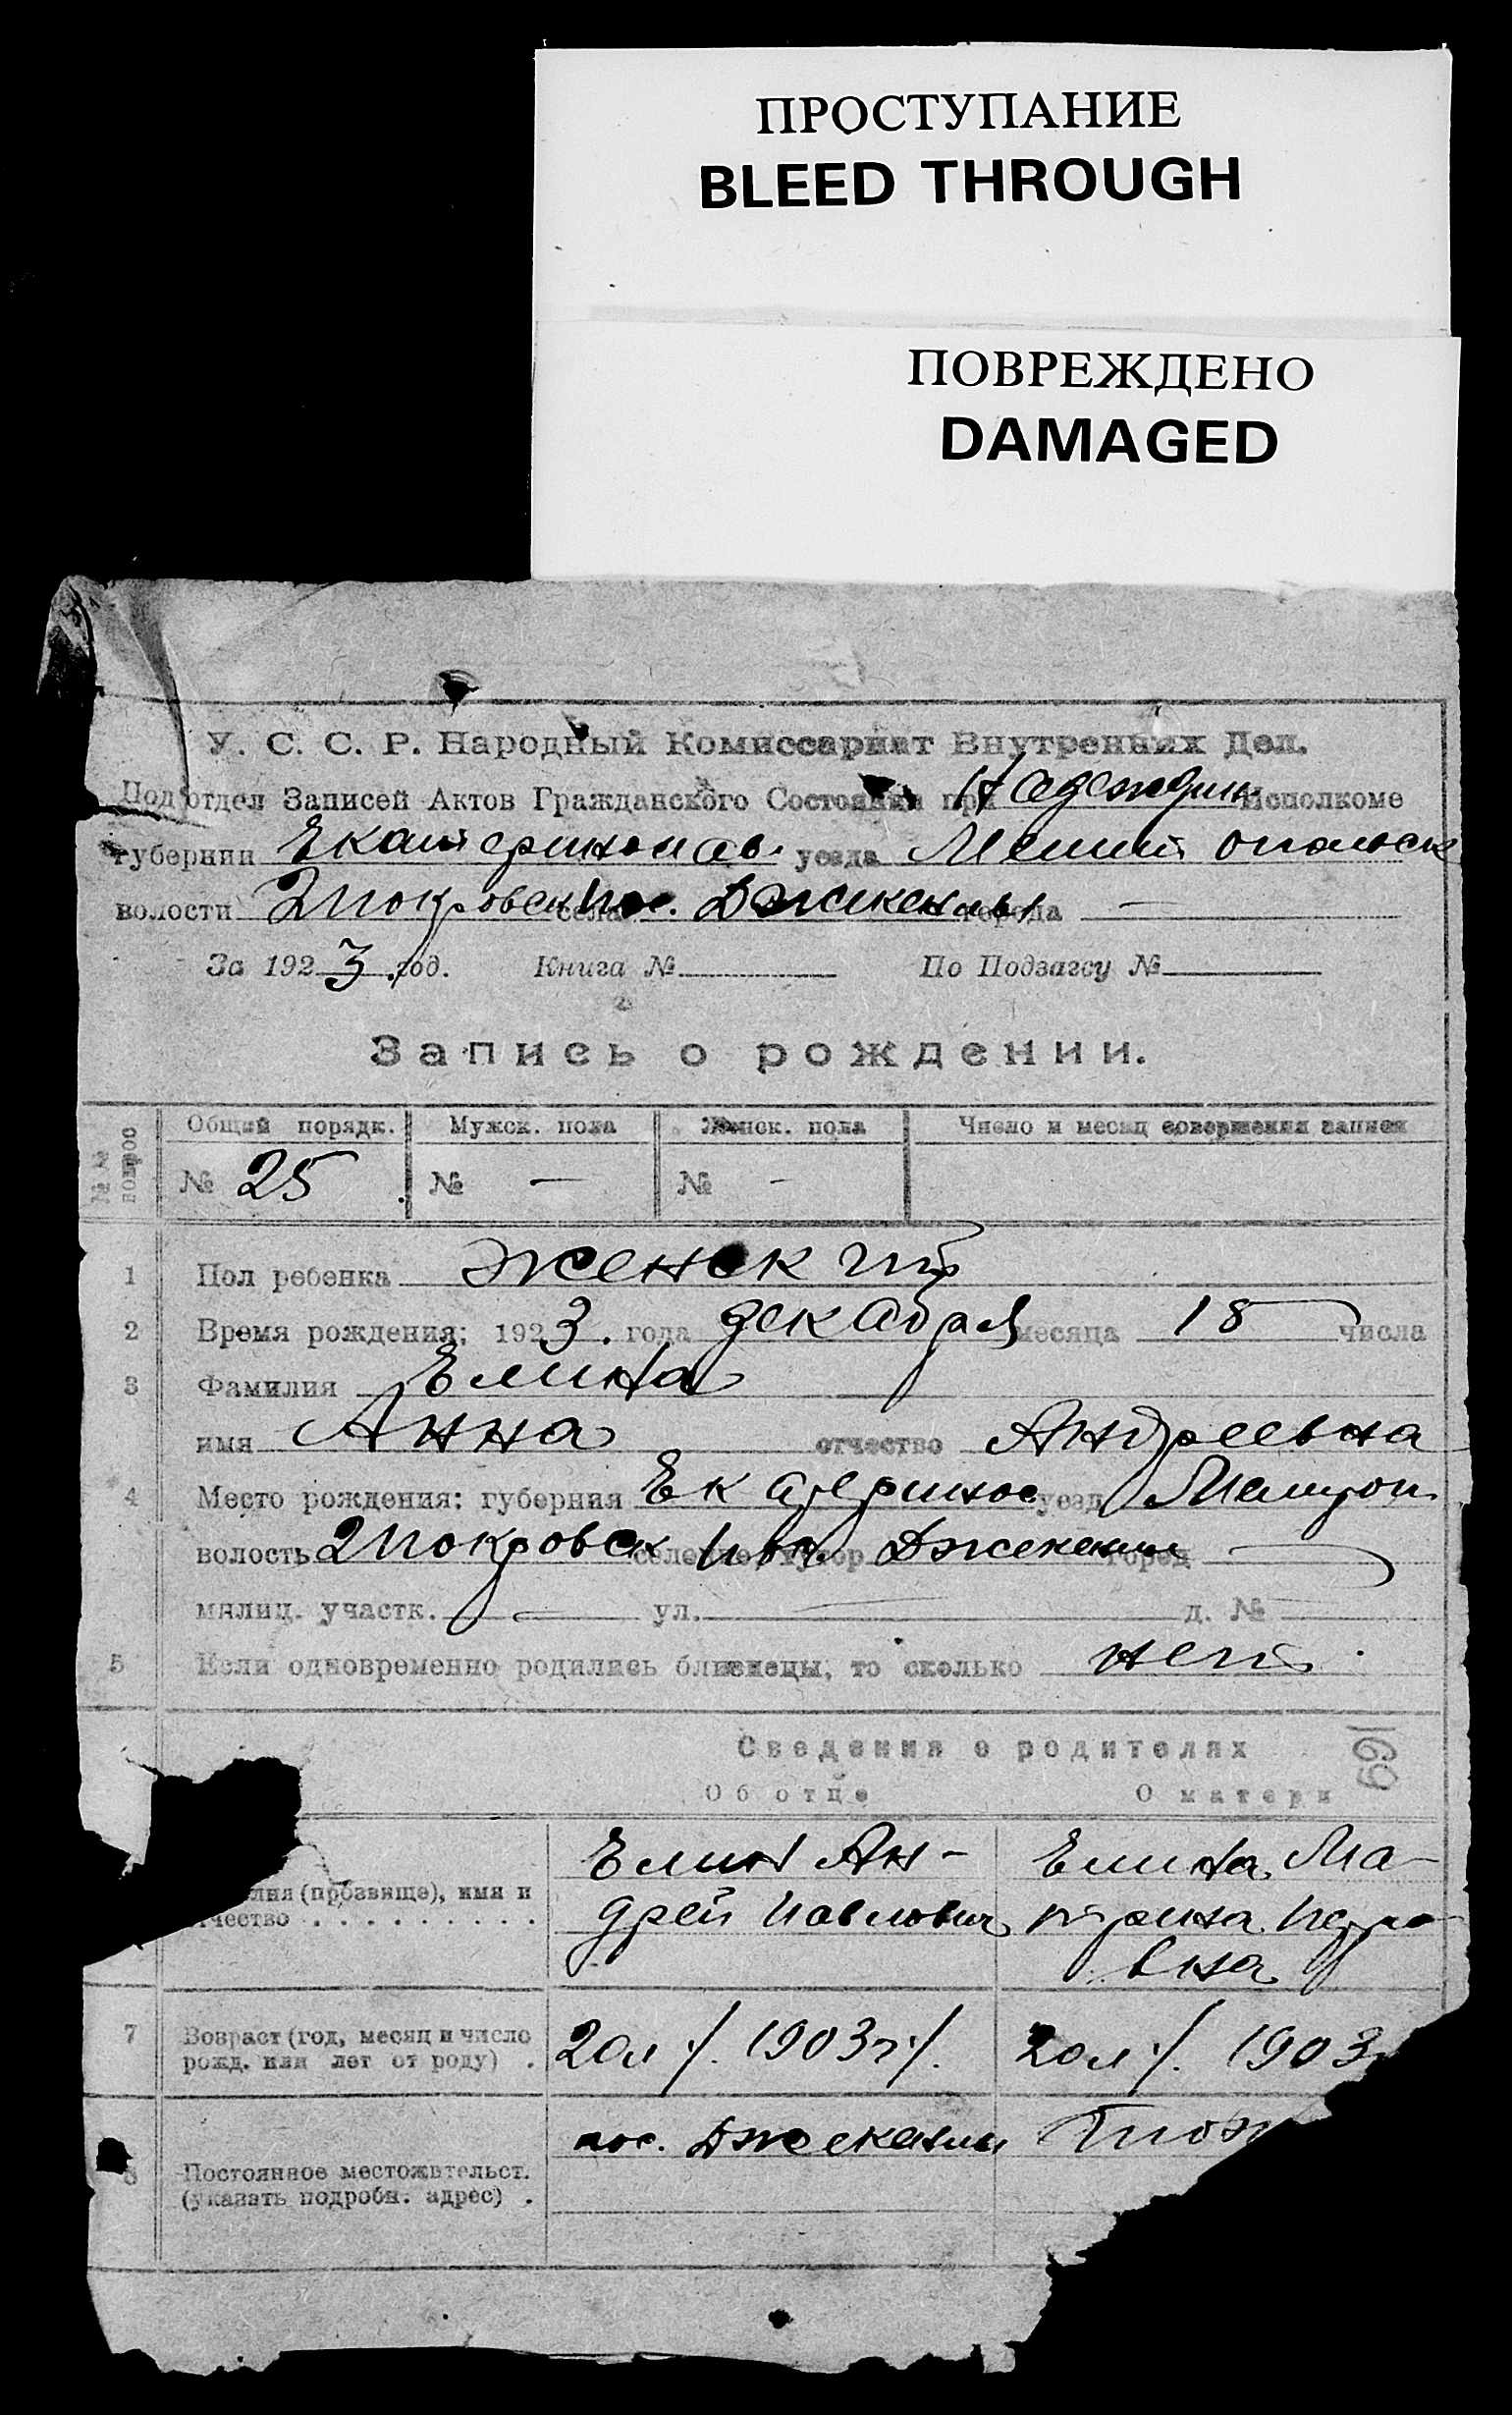 ПРОСТУПАНИЕ
BLEED THROUGH
ПОВРЕЖДЕНО
DAMAGED
У. С. С. Р. Народный Комиссариат Внутренних Дел.
Подотдел Записей Актов Гражданского Состояния при Надеждин Исполкоме
губернии Екатеринослав. уезда Мелитопольск
волости Покровск села пос. Джекенлы города —
За 1923 год. Книга № По Подзагсу №
Запись о рождении.
№№ вопрос
Общий порядк. Мужск. пола Женск. пола Число и месяц совершения записи
№ 25 № — № -
1 Пол ребенка женский
2 Время рождения: 1923. года декабря месяца 18 числа
3 Фамилия Елина
имя Анна отчество Андреевна
4 Место рождения: губерния Екатеринос уезд Мелитоп
волость Покровск селение, хутор пос. Джекенлы город —
милиц. участк. — ул. — д. №
5 Если одновременно родились близнецы, то сколько нет.
Сведения о родителях
169
Об отце О матери
Елин Ан- Елина Ма-
лия (прозвище), имя и дрей Павлович трина Петро
чество вна
7 Возраст (год, месяц и число 20 л /. 1903 г /. 20 л /. 1903
рожд. или лет от роду) .
пос. Джекенлы Тож
8 Постоянное местожительст.
(указать подробн. адрес) .